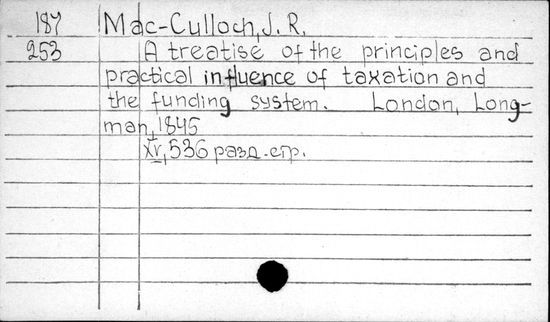 187 Mac-Culloch, J. R.
253 A treatise of the principles and
practical influence of taxation and
the funding system. London, Long-
man, 1845
XV, 536 разд. стр.